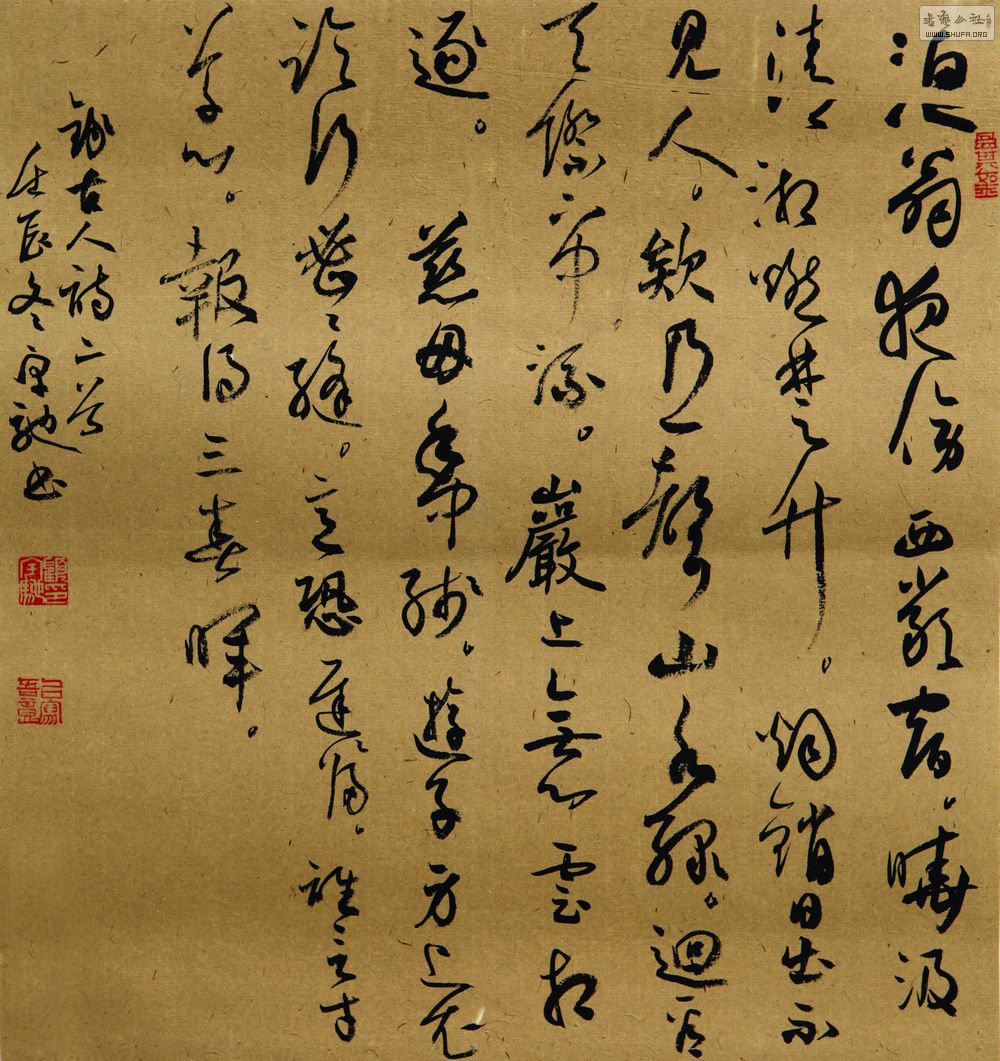 漁翁夜傍西巖宿。曉汲
清湘燃楚竹。烟銷日出不
見人。欸乃一聲山水綠。迴看
天際下中流。巖上無心雲相
逐。慈母手中綫。遊子身上衣
臨行密〻縫。意恐遲〻歸。誰言寸
草心。報得三春暉。
錄古人詩二首
壬辰冬宇馳書
顧宇馳印
書藝公社
WWW.SHUFA.ORG